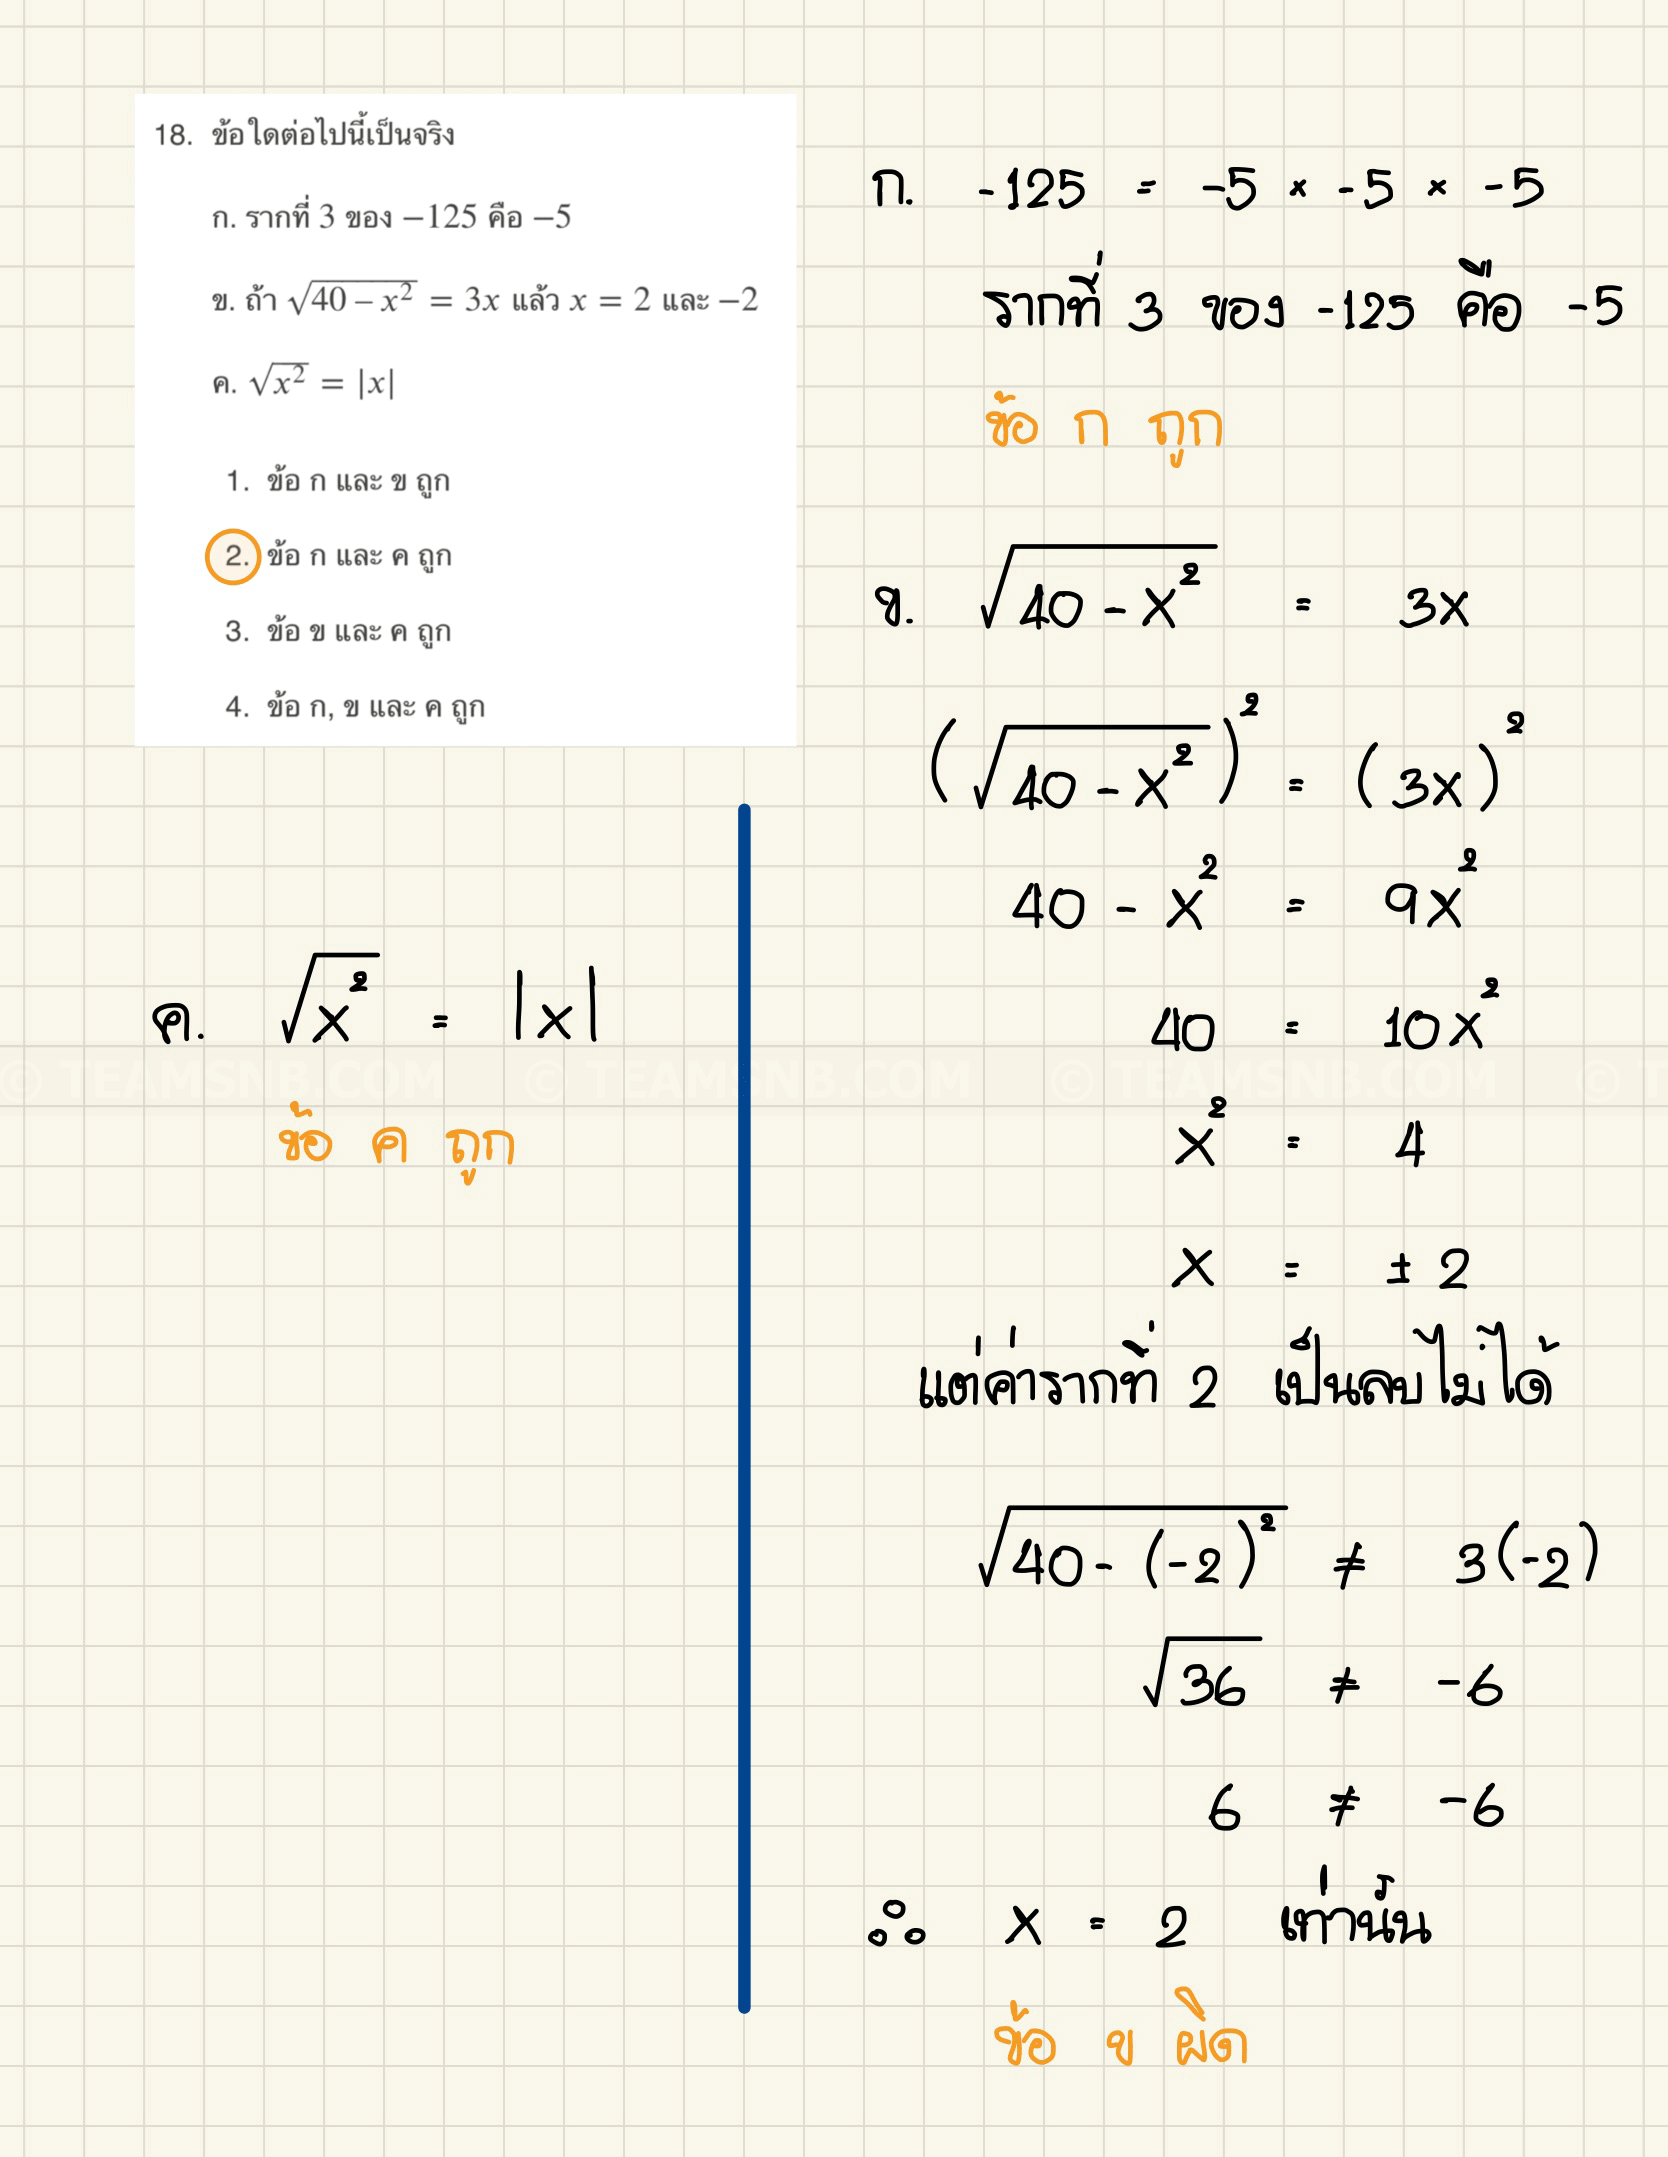 18. ข้อใดต่อไปนี้เป็นจริง
ก. รากที่ 3 ของ −125 คือ −5
ข. ถ้า √(40 − x²) = 3x แล้ว x = 2 และ −2
ค. √(x²) = |x|
1. ข้อ ก และ ข ถูก
2. ข้อ ก และ ค ถูก
3. ข้อ ข และ ค ถูก
4. ข้อ ก, ข และ ค ถูก
ก. -125 = -5 × -5 × -5
รากที่ 3 ของ -125 คือ -5
ข้อ ก ถูก
ข. √(40 - x²) = 3x
(√(40 - x²))² = (3x)²
40 - x² = 9x²
40 = 10x²
x² = 4
x = ± 2
แต่ค่ารากที่ 2 เป็นลบไม่ได้
√(40 - (-2)²) ≠ 3(-2)
√36 ≠ -6
6 ≠ -6
∴ x = 2 เท่านั้น
ข้อ ข ผิด
ค. √(x²) = |x|
ข้อ ค ถูก
© TEAMSNB.COM © TEAMSNB.COM © TEAMSNB.COM © T